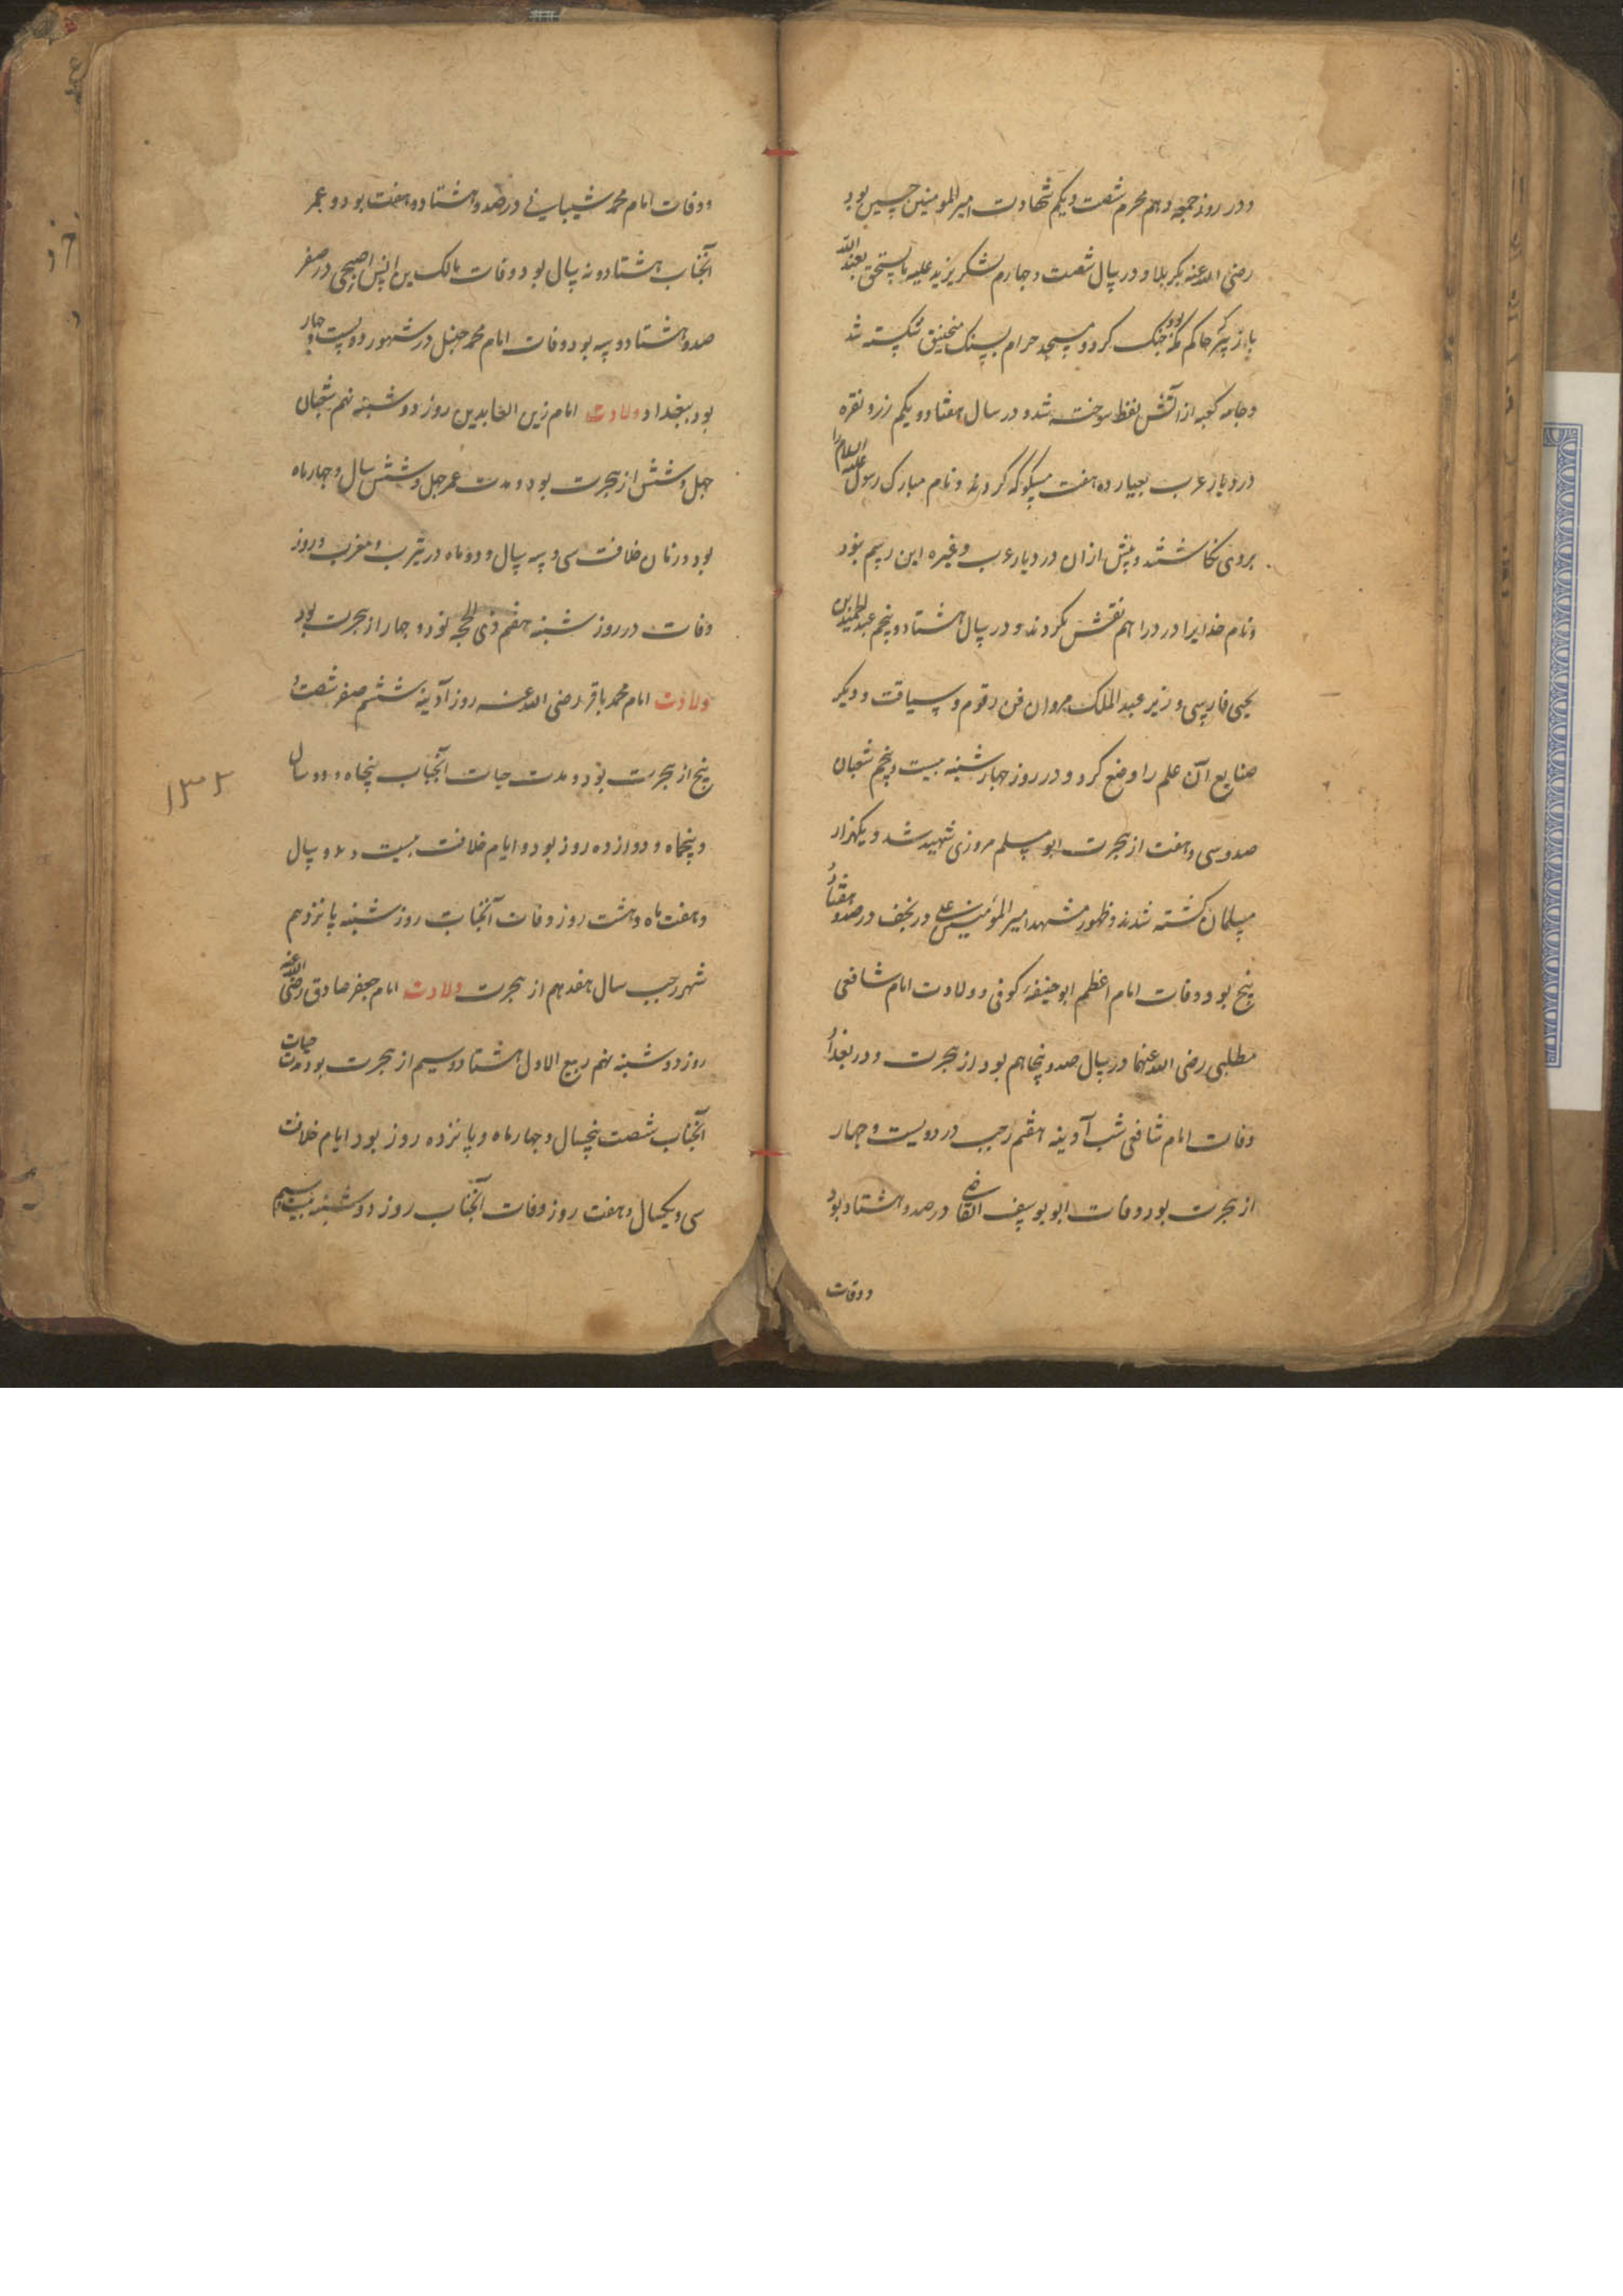 و در روز جمعه دهم محرم شصت و یکم شهادت امیرالمومنین حسین بود
رضی الله عنه بکربلا و در سال شصت و چهارم لشکر یزید علیه ما یستحق بعبدالله
با زبیر حاکم مکه بود جنک کرد و مسجد حرام بسنک منجنیق شکسته شد
و جامه کعبه از آتش نفط سوخته شد و در سال هفتاد و یکم زر و نقره
در دیار عرب بعیار ده هفت مسکوکه کردند و نام مبارک رسول علیه السلام را
بروی نکاشتند و پیش از ان در دیار عرب و غیره این رسم نبود
و نام خدایرا در درا هم نقش نکردند و در سال هشتاد و پنجم عبدالحمید بن
یحیی فارسی وزیر عبدالملک مروان فن رقوم و سیاقت و دیکر
صنایع آن علم را وضع کرد و در روز چهارشنبه بیست و پنجم شعبان
صد و سی و هفت از هجرت ابو مسلم مروزی شهید شد و یکهزار
مسلمان کشته شدند و ظهور مشهد امیرالمؤمنین علی در نجف در صد و هفتاد و
پنج بود و وفات امام اعظم ابوحنیفه کوفی و ولادت امام شافعی
مطلبی رضی الله عنهما در سال صد و پنجاهم بود از هجرت و در بغداد
وفات امام شافعی شب آدینه هفتم رجب در دویست و چهار
از هجرت بود و وفات ابو یوسف القاضی در صد و هشتاد بود
و وفات
و وفات امام محمد شیبانی در صد و هشتاد و هفت بود و عمر
آنجناب هشتاد و نه سال بود و وفات مالک بن انس اصبحی در صفر
صد و هشتاد و سه بود و وفات امام محمد حنبل در شهور دویست و چهار
بود ببغداد ولادت امام زین العابدین روز دوشنبه نهم شعبان
چهل و شش از هجرت بود و مدت عمر چهل و شش سال و چهار ماه
بود و زمان خلافت سی و سه سال و دو ماه در یثرب و مغرب و روز
وفات در روز شنبه هفتم ذی الحجه نود و چهار از هجرت بود
ولادت امام محمد باقر رضی الله عنه روز آدینه ششم صفر شصت و
پنج از هجرت بود و مدت حیات آنجناب پنجاه و دو سال
و پنجاه و دوازده روز بود و ایام خلافت بیست و دو سال
و هفت ماه و هشت روز وفات آنجناب روز شنبه پانزدهم
شهر رجب سال هفدهم از هجرت ولادت امام جعفر صادق رضی الله عنه
روز دوشنبه نهم ربیع الاول هشتاد و سیم از هجرت بود مدت حیات
آنجناب شصت پنجسال و چهار ماه و پانزده روز بود ایام خلافت
سی و یکسال و هفت روز وفات آنجناب روز دوشنبه
۱۳۲